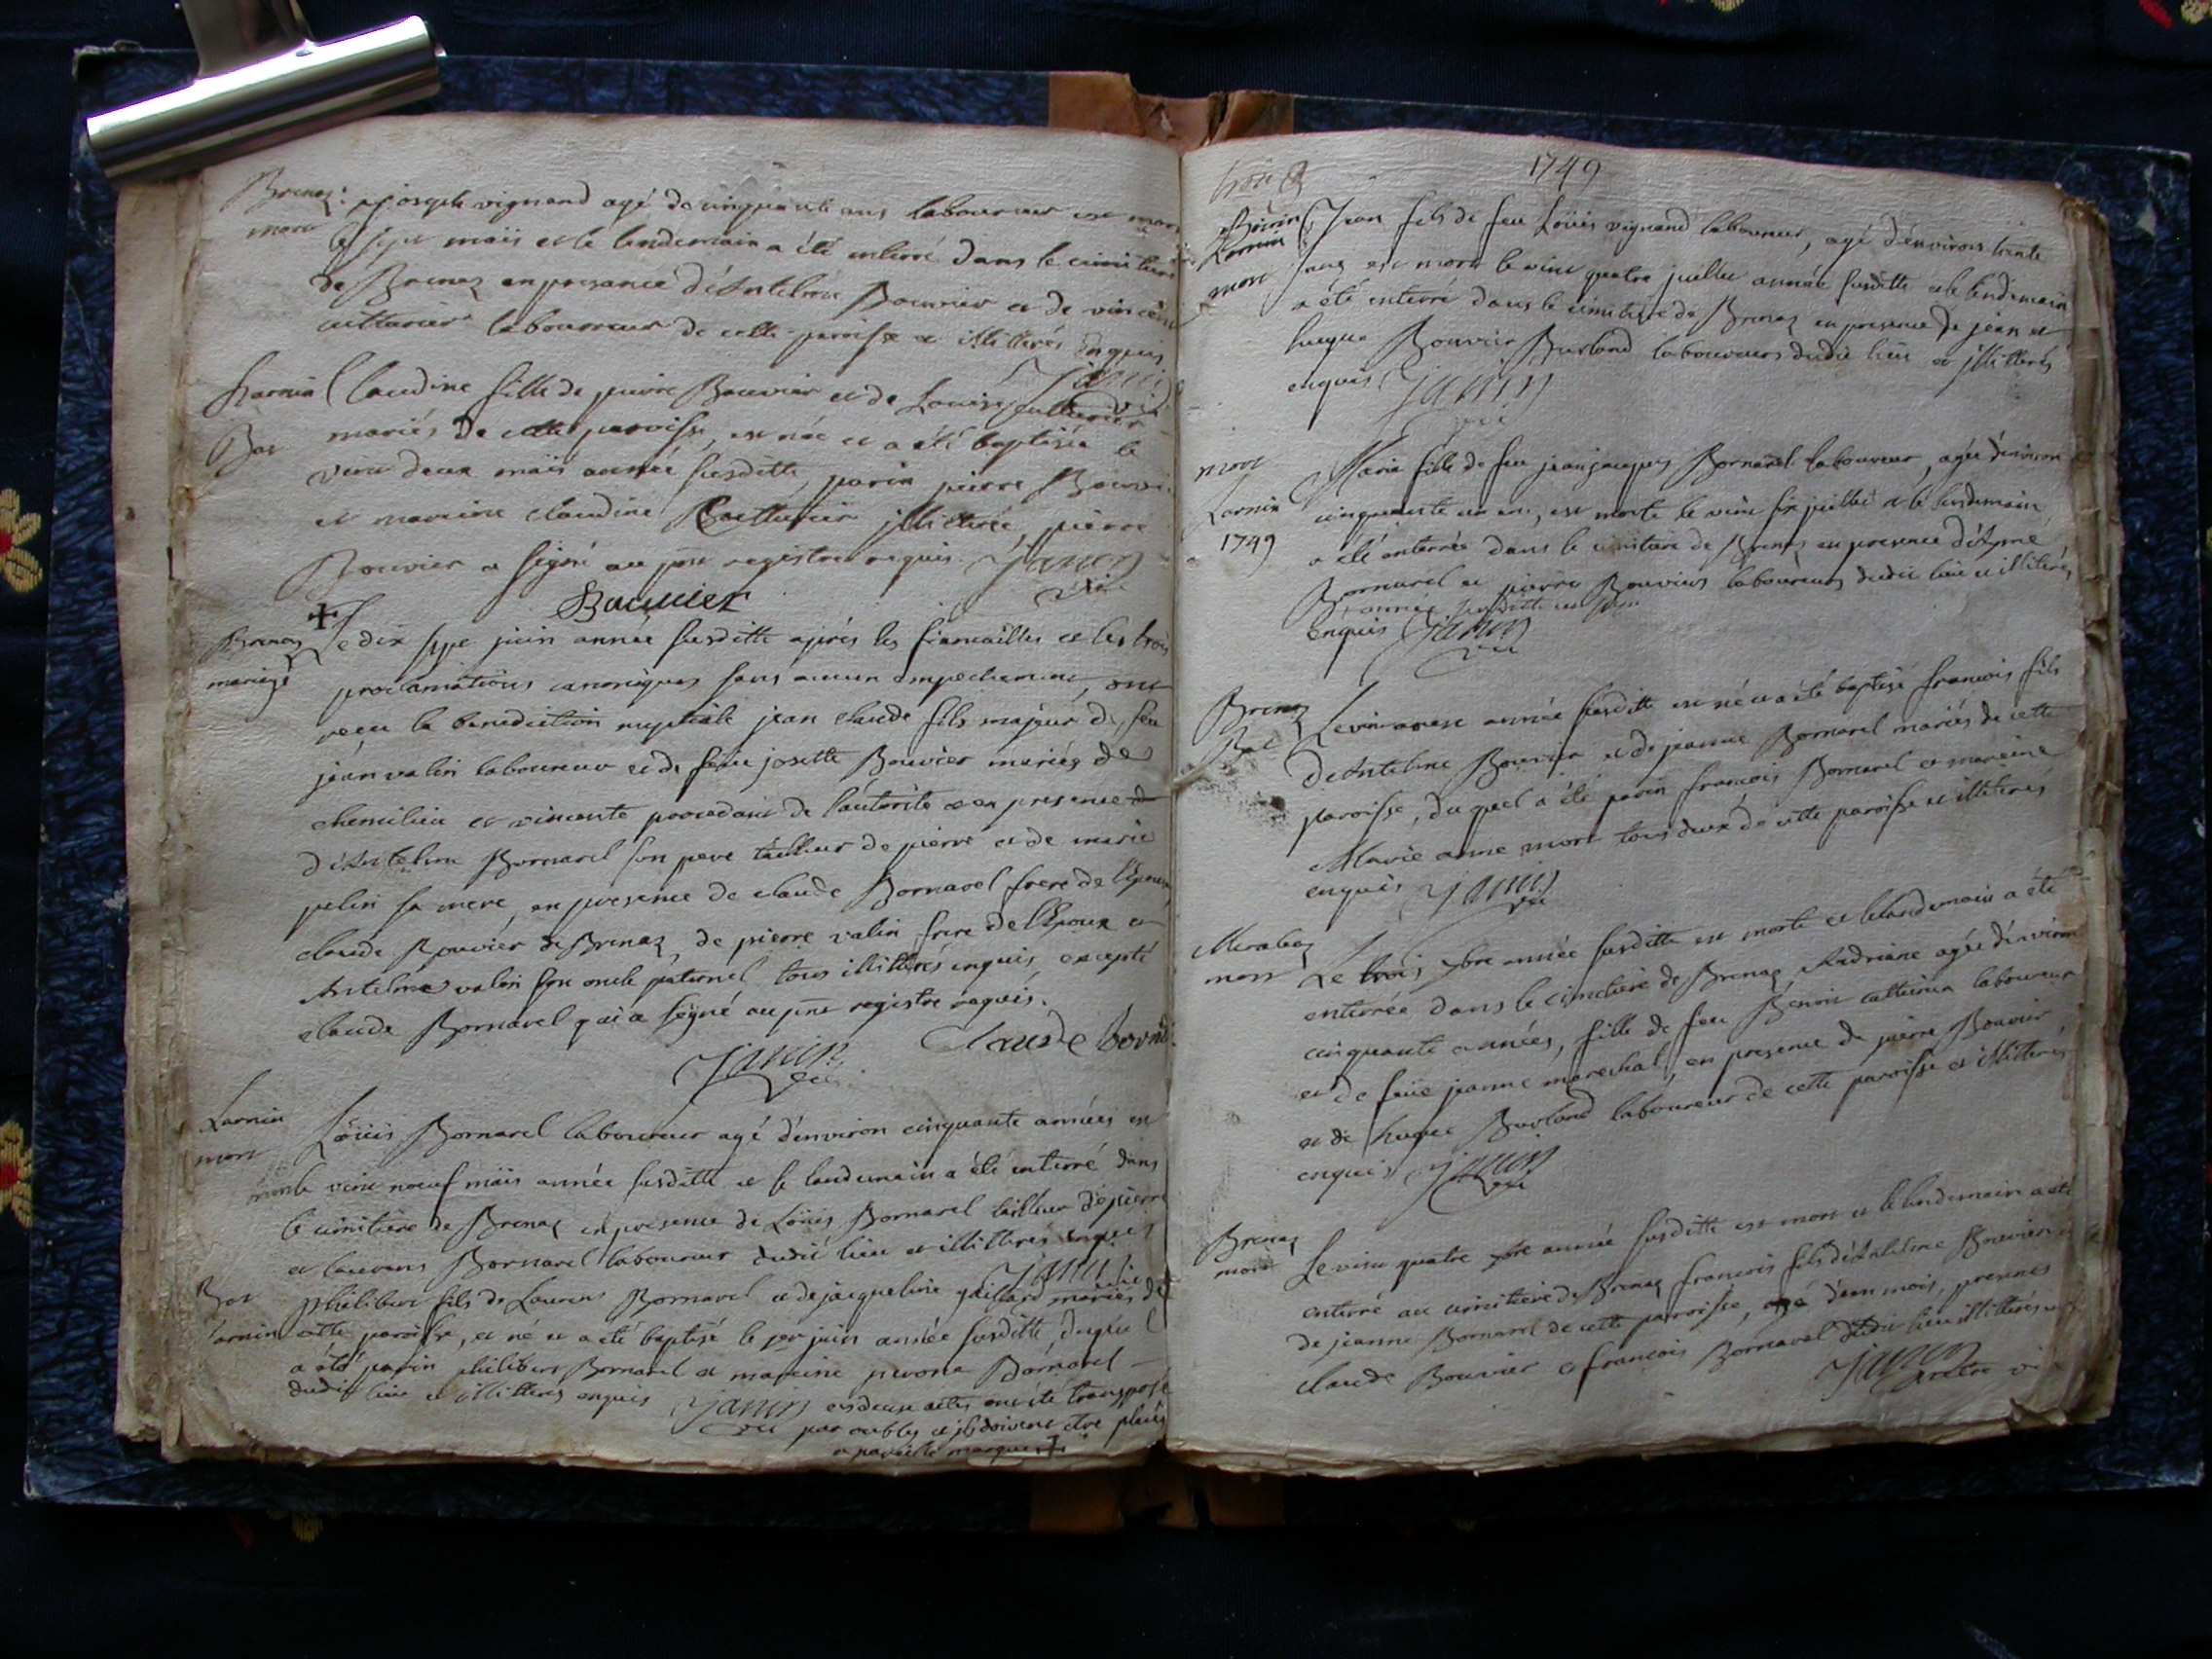 Brenaz mort
joseph vignand agé de cinquante ans laboureur est mort
le sept maïi et le lendemain a été enterré dans le cimitiere
de Brenaz en presance d'Antelme Bouvier et de vincent
cuttarier laboureur de cette paroisse et illitterés enquis
Janin
Larnin
Bat
Claudine fille de pierre Bouvier et de Louise cuttarier
mariés de cette paroisse, est née et a été baptisée le
vint deux maïi année susditte, parin pierre Bouvier
et mareine claudine illiterée, pierre
Bouvier a signé au pnt registre requis. Janin
Bouuier
Brenaz
mariage
Le dix sept juin année susditte aprés les fiancailles et les trois
proclamations canoniques sans aucun empechement, ont
reçu la benediction nuptiale jean claude fils majeur de feu
jean valin laboureur et de feüe josette Bouvier mariés de
chemilieu et vincente procedant de l'autorité et en presence
d'Antelme Bornarel son pere tailleur de pierre et de marie
pelin sa mere, en presence de claude Bornarel frere de l'Epouse,
claude Bouvier de Brenaz, de pierre valin frere de l'Epoux et
Antelme valin son oncle paternel tous illitterés enquis, excepté
claude Bornarel qui a signé au pnt registre requis.
Janin Claude born
Larnin
mort
Loüis Bornarel laboureur agé d'environ cinquante années est
mort le vint neuf maïi année susditte et le landemain a été enterré dans
le cimitiere de Brenaz en presence de Loüis Bornarel tailleur de pierre
et laurens Bornarel laboureur dudit lieu et illitterés enquis
Janin
Bat
Larnin
philibert fils de Laurens Bornarel et de jacqueline gaillard mariés de
cette paroisse, est né et a été baptisé le per juin année susditte, duquel
a été parin philibert Bornarel et mareine perone Bornarel
dudit lieu et illitterés enquis Janin ces deux actes ont été transposé
par oubly et ils doivent etre placés
a pareille marque +
1749
Larnin
mort
Jean fils de feu Loüis vignand laboureur, agé d'environ trente
ans est mort le vint quatre juillet année susditte et le lendemain
a été enterré dans le cimitiere de Brenaz en presence de jean et
hugue Bouvier Burland laboureurs dudit lieu et illitterés
enquis Janin
mort
Larnin
1749
Marie fille de feu jean jacques Bornarel laboureur, agée d'environ
cinquante un an, est morte le vint six juillet et le lendemain
a été enterrée dans le cimitiere de Brenaz en presence d'Aymé
Bornarel et pierre Bouvier laboureurs dudit lieu et illiterés
année susditte
Enquis Janin
Brenaz
Bat
Le vint année susditte est né et a été baptisé francois fils
d'Antelme Bouvier et de jeanne Bornarel mariés de cette
paroisse, duquel a été parin francois Bornarel et mareine
Marie anne mort tous deux de cette paroisse et illiterés
enquis Janin
mort
Le trois xbre année susditte est morte et le landemain a été
enterrée dans le cimetiere de Brenaz Andriane agée d'environ
cinquante années, fille de feu Benoit cuttarier laboureur
et de feüe jeanne marechal, en presence de pierre Bouvier
et de hugue Burland laboureur de cette paroisse et illitterés
enquis Janin
Brenaz
mort
Le vint quatre xbre année susditte est mort et le lendemain a été
enterré au cimitiere de Brenaz francois fils d'Antelme Bouvier et
de jeanne Bornarel de cette paroisse, agé d'un mois, presnnes
claude Bouvier et francois Bornarel dudit lieu illitterés
Janin